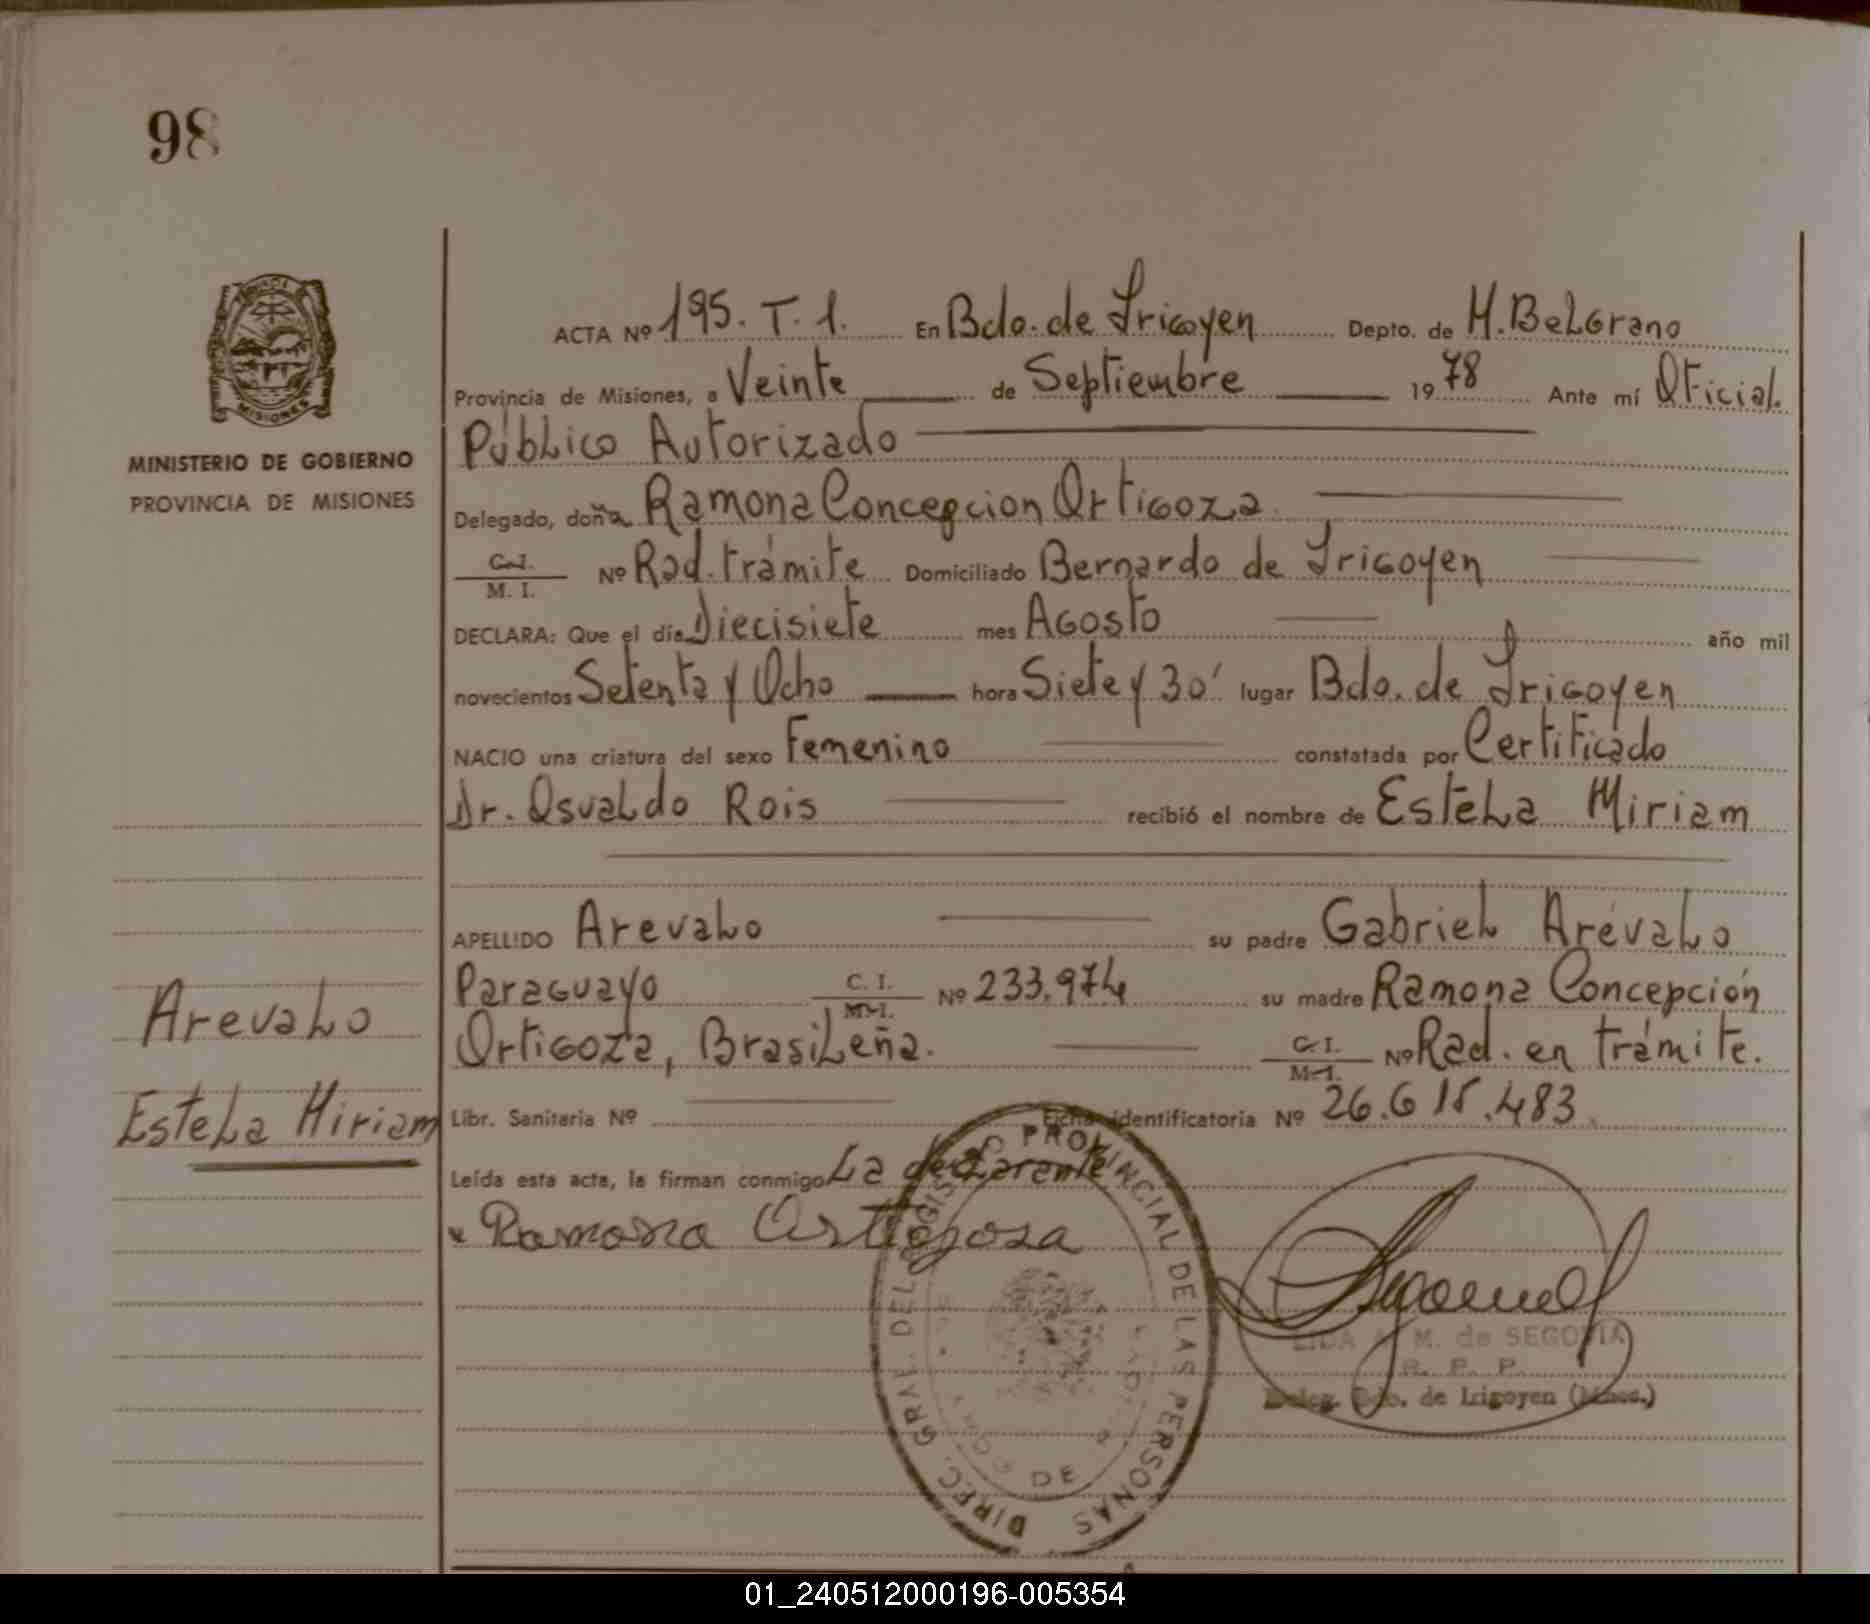 98
MISIONES
MINISTERIO DE GOBIERNO
PROVINCIA DE MISIONES
Arevalo
Estela Miriam
ACTA Nº 195. T. 1. En Bdo. de Irigoyen Depto. de M. Belgrano
Provincia de Misiones, a Veinte de Septiembre 1978 Ante mí Oficial
Público Autorizado
Delegado, doña Ramona Concepcion Ortigoza
C. I.
M. I. Nº Rad. trámite Domiciliado Bernardo de Irigoyen
DECLARA: Que el día Diecisiete mes Agosto año mil
novecientos Setenta y Ocho hora Siete y 30' lugar Bdo. de Irigoyen
NACIO una criatura del sexo Femenino constatada por Certificado
Dr. Osvaldo Rois recibió el nombre de Estela Miriam
APELLIDO Arevalo su padre Gabriel Arévalo
Paraguayo C. I.
M. I. Nº 233.974 su madre Ramona Concepción
Ortigoza, Brasileña. C. I.
M. I. Nº Rad. en trámite.
Libr. Sanitaria Nº Ficha identificatoria Nº 26.615.483.
Leída esta acta, la firman conmigo La declarante
Ramona Ortigosa
DIREC. GRAL. DEL REGISTRO PROVINCIAL DE LAS PERSONAS
DE
M. de SEGOVIA
R. P. P.
Deleg. Bdo. de Irigoyen (Mnes.)
01_240512000196-005354